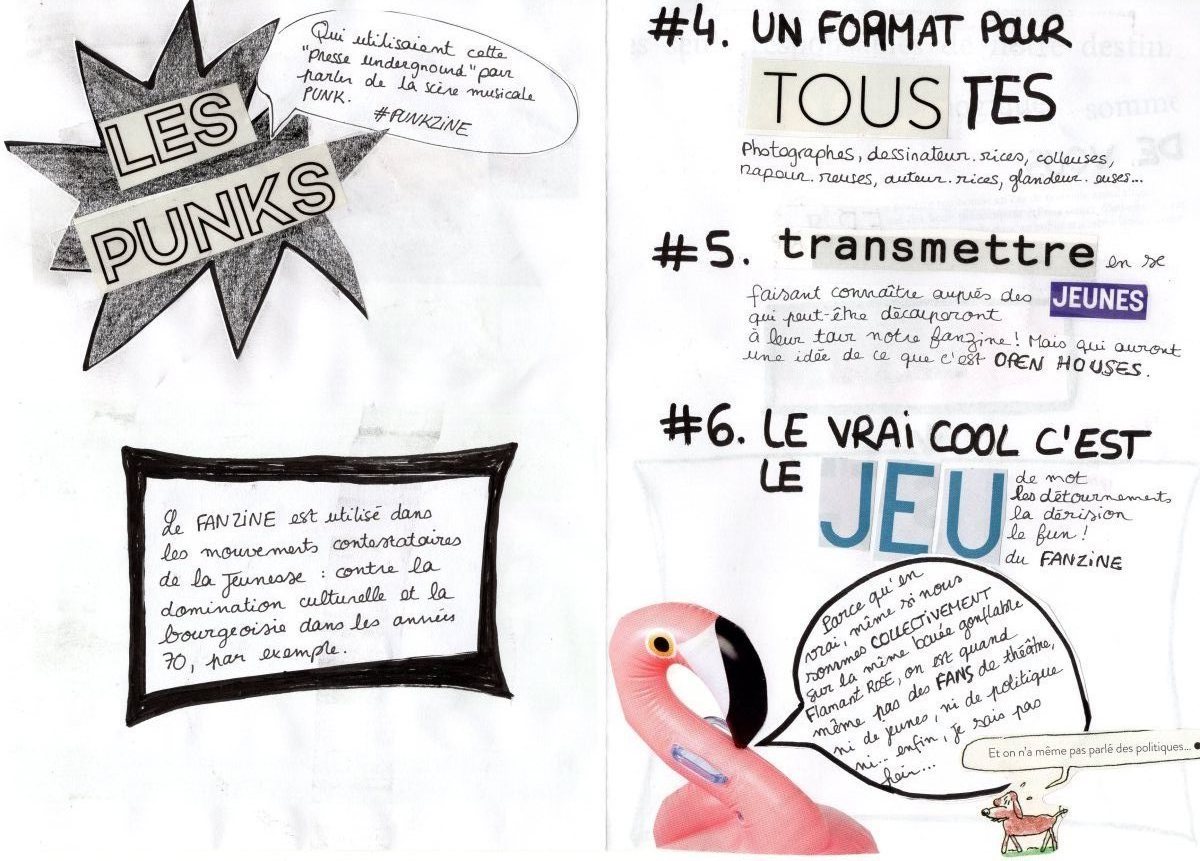 LES
PUNKS
Qui utilisaient cette
"presse undergnound" pour
parler de la scène musicale
PUNK.
#PUNKZINE
Le FANZINE est utilisé dans
les mouvements contestataires
de la Jeunesse : contre la
domination culturelle et la
bourgeoisie dans les années
70, par exemple.
#4. UN FORMAT POUR
TOUSTES
Photographes, dessinateur.rices, colleuses,
rapour.reuses, auteur.rices, glandeur.euses...
#5. transmettre en se
faisant connaître auprés des JEUNES
qui peut-être découperont
à leur tour notre fanzine! Mais qui auront
une idée de ce que c'est OPEN HOUSES.
#6. LE VRAI COOL C'EST
LE JEU de mot
les détournements
la dérision
le fun!
du FANZINE
Parce qu'en
vrai, même si nous
sommes COLLECTIVEMENT
sur la même bouée gonflable
Flamant ROSE, on est quand
même pas des FANS de théâtre,
ni de jeunes, ni de politique
ni... enfin, je sais pas
hein...
Et on n'a même pas parlé des politiques...